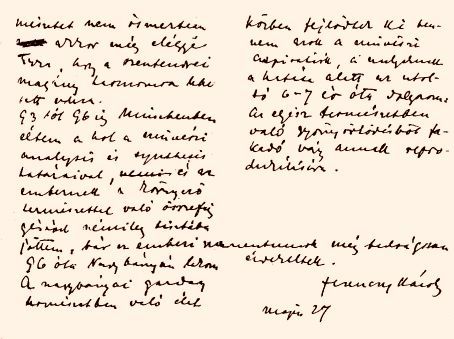 méntet nem ösmertem
azzor még eléggé
Túrs, hogy a szentendrei
magány homonora lehe
tett volna.
93 tól 96 ig Münchenben
éltem a hol a művészi
analysis és synthesis
határaival, nemis és az
embernek a környező
természettel való összefüg
gésével némileg tisztába
jöttem, bár az emberi momentumok még bátorságosan
96 óta Nagybányán lakom érdekeltek.
A nagybányai gazdag
természetben való élet
körben fejlődtek ki ben-
nem azok a művészi
aspirátiók, a melyeknek
a hatása alatt az utol-
só 6-7 év óta dolgozom:
Az egész természetben
való gyönyörködésből fa-
kadó vágy annak repro-
dukálására.
Ferenczy Károly
május 27